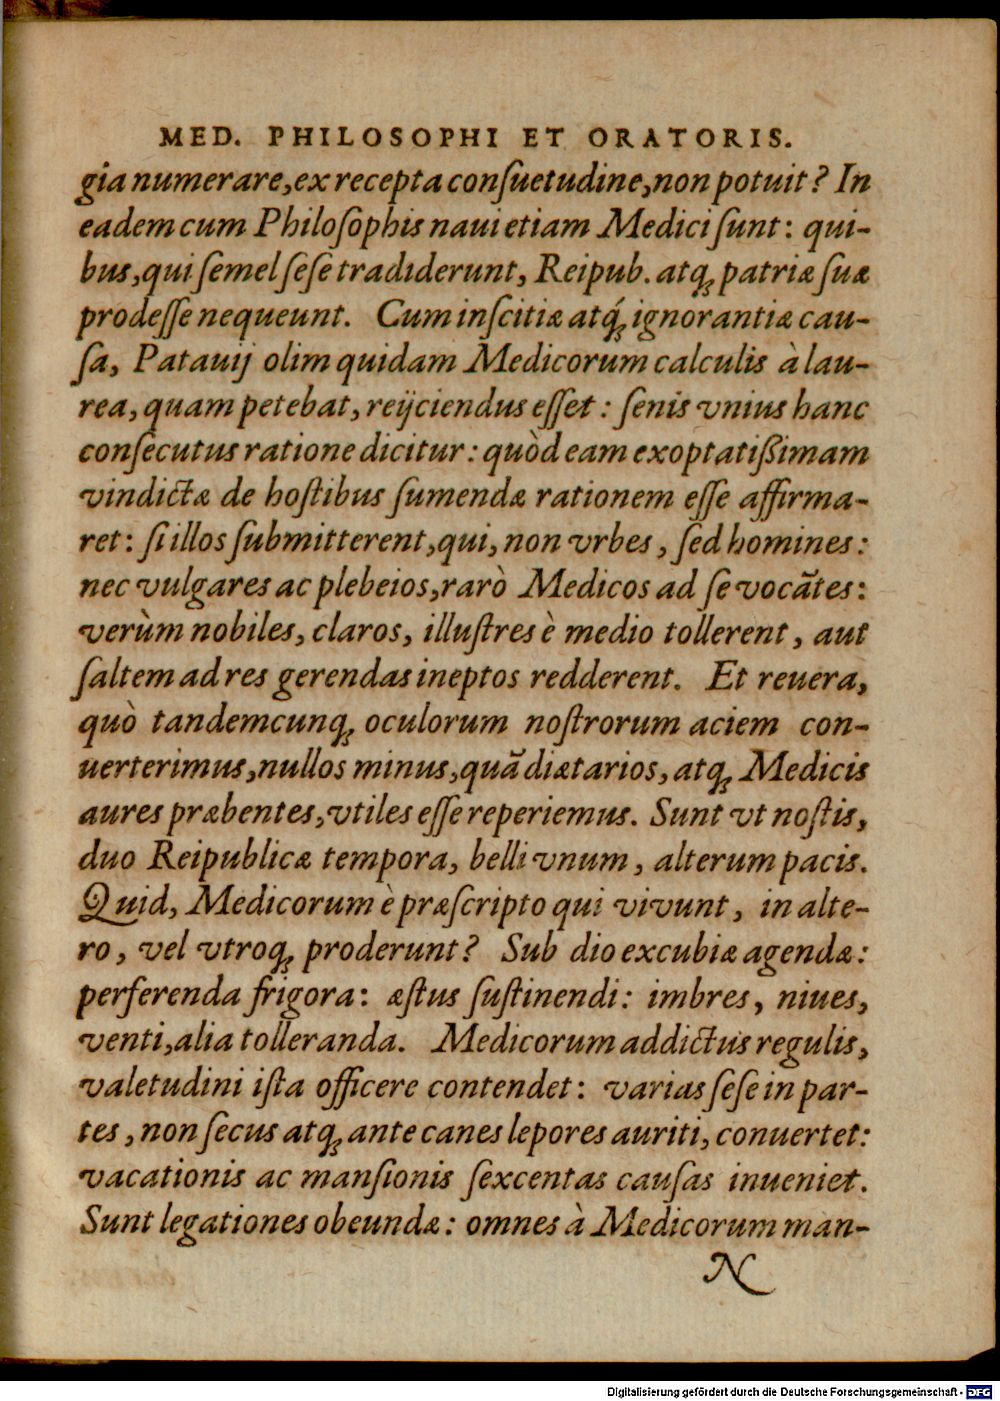 MED. PHILOSOPHI ET ORATORIS.
gia numerare, ex recepta conſuetudine, non potuit? In
eadem cum Philoſophis naui etiam Medici ſunt: qui-
bus, qui ſemel ſeſe tradiderunt, Reipub. atq̃ patriæ ſuæ
prodeſſe nequeunt. Cum inſcitiæ atq́; ignorantiæ cau-
ſa, Patauij olim quidam Medicorum calculis à lau-
rea, quam petebat, reijciendus eſſet: ſenis vnius hanc
conſecutus ratione dicitur: quòd eam exoptatißimam
vindictæ de hoſtibus ſumendæ rationem eſſe affirma-
ret: ſi illos ſubmitterent, qui, non vrbes, ſed homines:
nec vulgares ac plebeios, rarò Medicos ad ſe vocãtes:
verùm nobiles, claros, illuſtres è medio tollerent, aut
ſaltem ad res gerendas ineptos redderent. Et reuera,
quò tandemcunq; oculorum noſtrorum aciem con-
uerterimus, nullos minus, quã diætarios, atq; Medicis
aures præbentes, vtiles eſſe reperiemus. Sunt vt noſtis,
duo Reipublicæ tempora, belli vnum, alterum pacis.
Quid, Medicorum è præſcripto qui vivunt, in alte-
ro, vel vtroq; proderunt? Sub dio excubiæ agendæ:
perferenda frigora: æſtus ſuſtinendi: imbres, niues,
venti, alia tolleranda. Medicorum addictus regulis,
valetudini iſta officere contendet: varias ſeſe in par-
tes, non ſecus atq; ante canes lepores auriti, conuertet:
vacationis ac manſionis ſexcentas cauſas inueniet.
Sunt legationes obeundæ: omnes à Medicorum man-
N
Digitalisierung gefördert durch die Deutsche Forschungsgemeinschaft - DFG